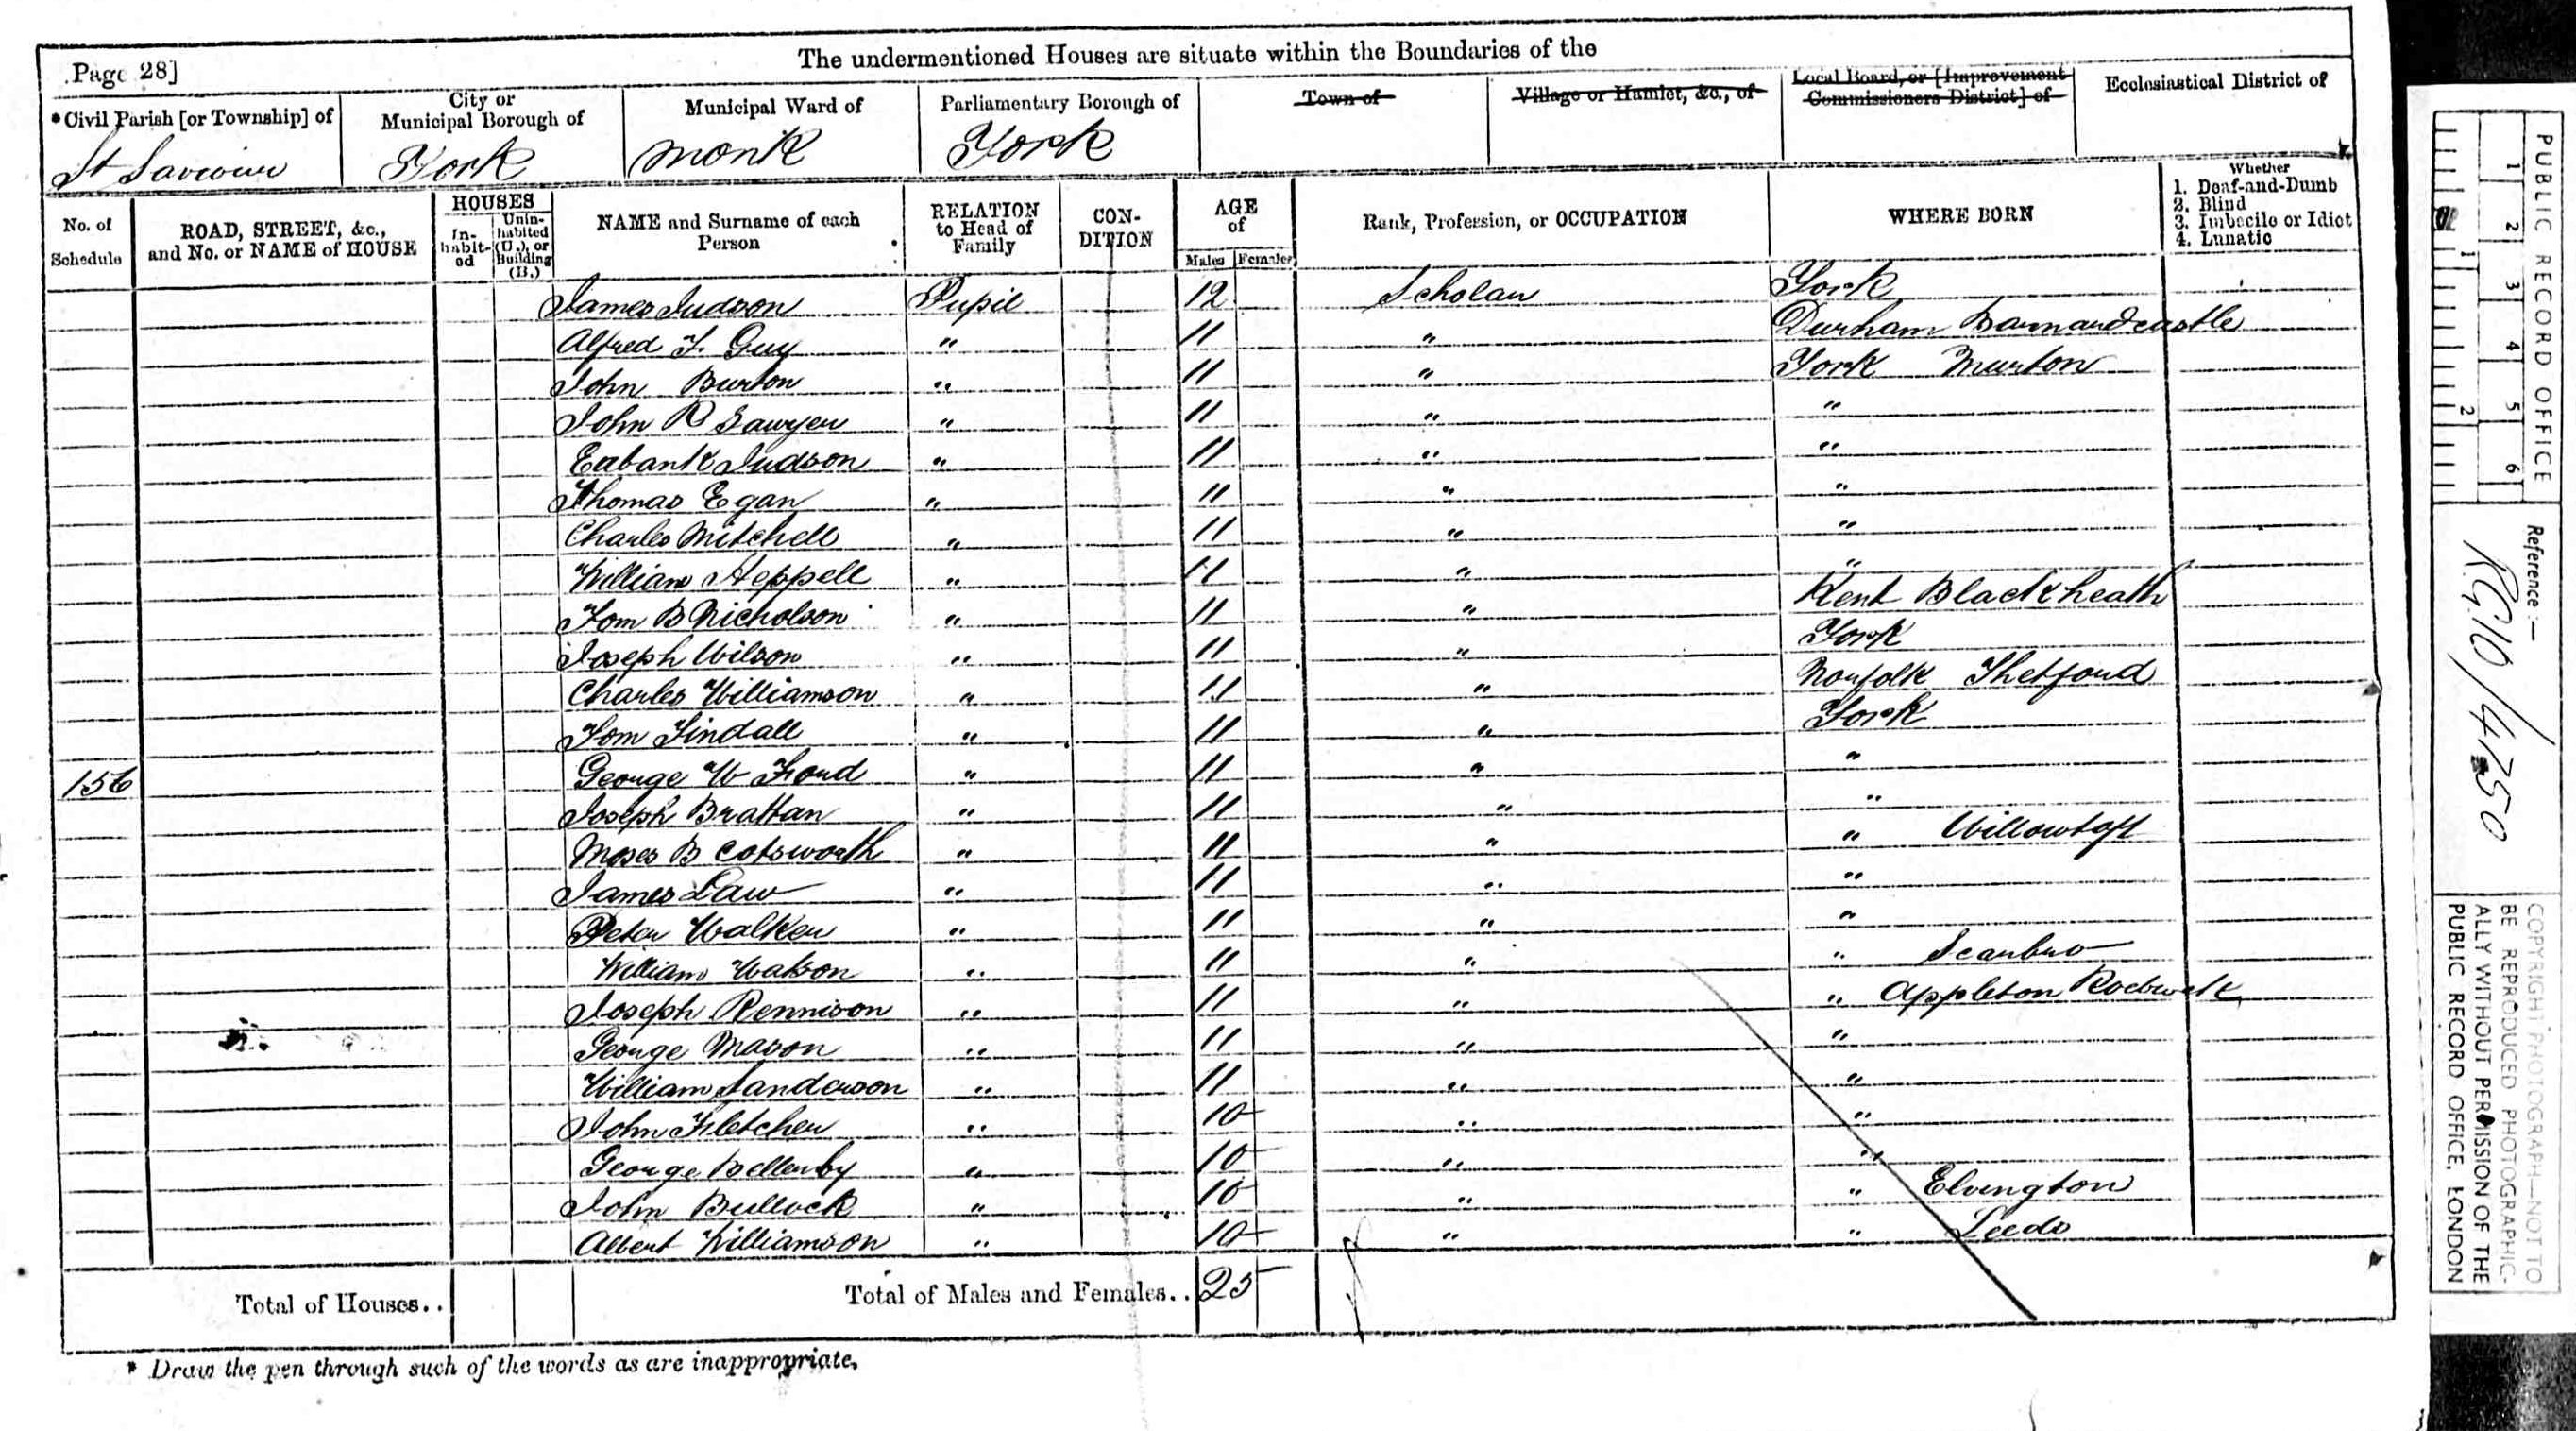 Page 28]
The undermentioned Houses are situate within the Boundaries of the
*Civil Parish [or Township] of
City or Municipal Borough of
Municipal Ward of
Parliamentary Borough of
Town of
Village or Hamlet, &c., of
Local Board, or [Improvement Commissioners District] of
Ecclesiastical District of
St Saviour York Monk York
No. of Schedule
ROAD, STREET, &c., and No. or NAME of HOUSE
HOUSES
In-habit-ed
Unin-habited (U.), or Building (B.)
NAME and Surname of each Person
RELATION to Head of Family
CON-DITION
AGE of
Males Females
Rank, Profession, or OCCUPATION
WHERE BORN
Whether
1. Deaf-and-Dumb
2. Blind
3. Imbecile or Idiot
4. Lunatic
James Judson Pupil 12 Scholar York
Alfred F. Guy " 11 " Durham Barnardcastle
John Burton " 11 " York Murton
John R Sawyer " 11 " "
Eubank Judson " 11 " "
Thomas Egan " 11 " "
Charles Mitchell " 11 " "
William Heppell " 11 " "
Tom B Nicholson " 11 " Kent Blackheath
Joseph Wilson " 11 " York
Charles Williamson " 11 " Norfolk Thetford
Tom Tindall " 11 " York
156 George W Ford " 11 " "
Joseph Brattan " 11 " "
Moses B Cotsworth " 11 " " Willowtoft
James Law " 11 " "
Peter Walker " 11 " "
William Watson " 11 " " Scarbro
Joseph Rennison " 11 " " Appleton Roebuck
George Mason " 11 " "
William Sanderson " 11 " "
John Fletcher " 10 " "
George Bellerby " 10 " "
John Bullock " 10 " " Elvington
Albert Williamson " 10 " " Leeds
Total of Houses..
Total of Males and Females.. 25
* Draw the pen through such of the words as are inappropriate.
PUBLIC RECORD OFFICE
1 2 3 4 5 6
1 2
Reference:—
RG10/4750
COPYRIGHT PHOTOGRAPH—NOT TO
BE REPRODUCED PHOTOGRAPHIC-
ALLY WITHOUT PERMISSION OF THE
PUBLIC RECORD OFFICE, LONDON